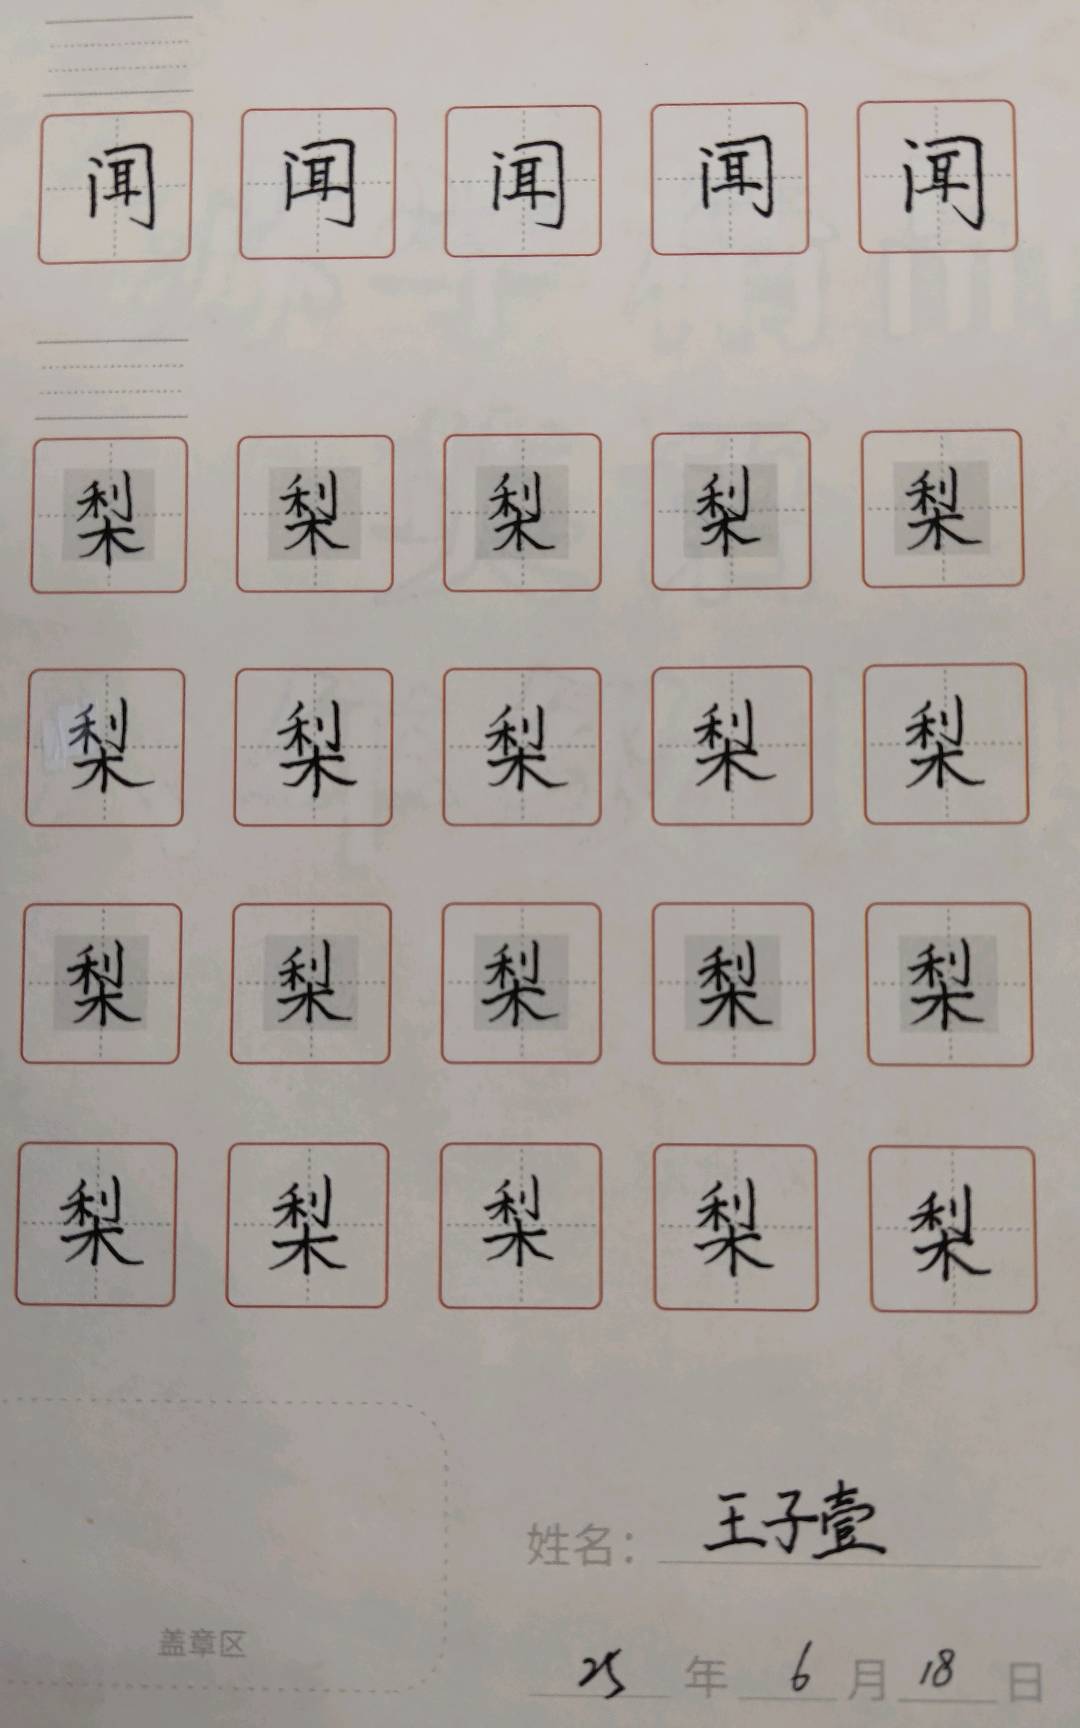 闻 闻 闻 闻 闻
梨 梨 梨 梨 梨
梨 梨 梨 梨 梨
梨 梨 梨 梨 梨
梨 梨 梨 梨 梨
姓名: 王子壹
盖章区
25 年 6 月 18 日